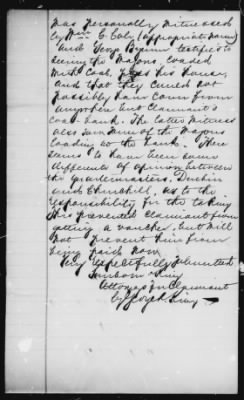 was personally witnessed
by Wm C. Cole (appropriate name)
and Geog testifies to
seeing the Wagons, loaded
with Coal, pass his house,
and that they could not
possibly have come from
anywhere but Claimant's
coal-bank. The latter witness
also saw some of the Wagons
loading at the bank. There
seems to have been some
difference of opinion between
the quartermasters, Durbin
and Churchill, as to the
responsibility for the taking
this prevented claimant from
getting a voucher, but will
not prevent him from
being paid now.
Very respectfully submitted
King
Attorneys for Claimant
by King